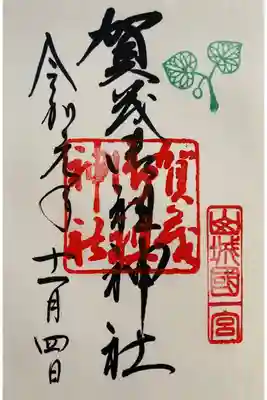 山城國一宮
賀茂御祖神社
賀茂御祖神社
令和元年十一月四日